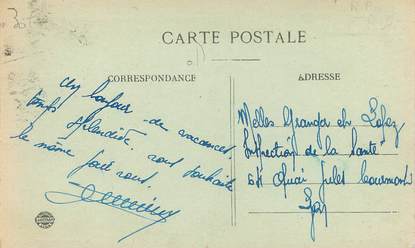 CARTE POSTALE
CORRESPONDANCE
ADRESSE
Un bonjour de vacances,
temps splendide. vous souhaite
le même pour vous.
Melles Granger et Lopez
Inspection de la Santé
Quai Jules Courmont
Lyon